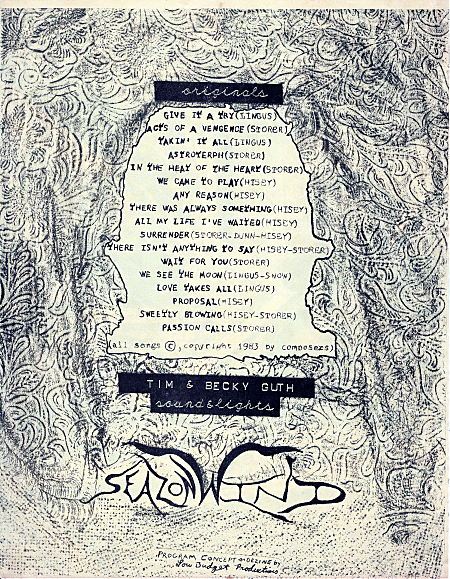 originals
GIVE IT A TRY(LINGUS)
ACTS OF A VENGENCE(STORER)
TAKIN' IT ALL(LINGUS)
ASTROTERPH(STORER)
IN THE HEAT OF THE HEART(STORER)
WE CAME TO PLAY(HISEY)
ANY REASON(HISEY)
THERE WAS ALWAYS SOMETHING(HISEY)
ALL MY LIFE I'VE WAITED(HISEY)
SURRENDER(STORER-DUNN-HISEY)
THERE ISN'T ANYTHING TO SAY(HISEY-STORER)
WAIT FOR YOU(STORER)
WE SEE THE MOON(LINGUS-SNOW)
LOVE TAKES ALL(LINGUS)
PROPOSAL(HISEY)
SWEETLY BLOWING(HISEY-STORER)
PASSION CALLS(STORER)
(all songs ©, copyright 1983 by composers)
TIM & BECKY GUTH
sound&lights
SEAZON WIND
PROGRAM CONCEPT & DEZINE BY
Low Budget Productions